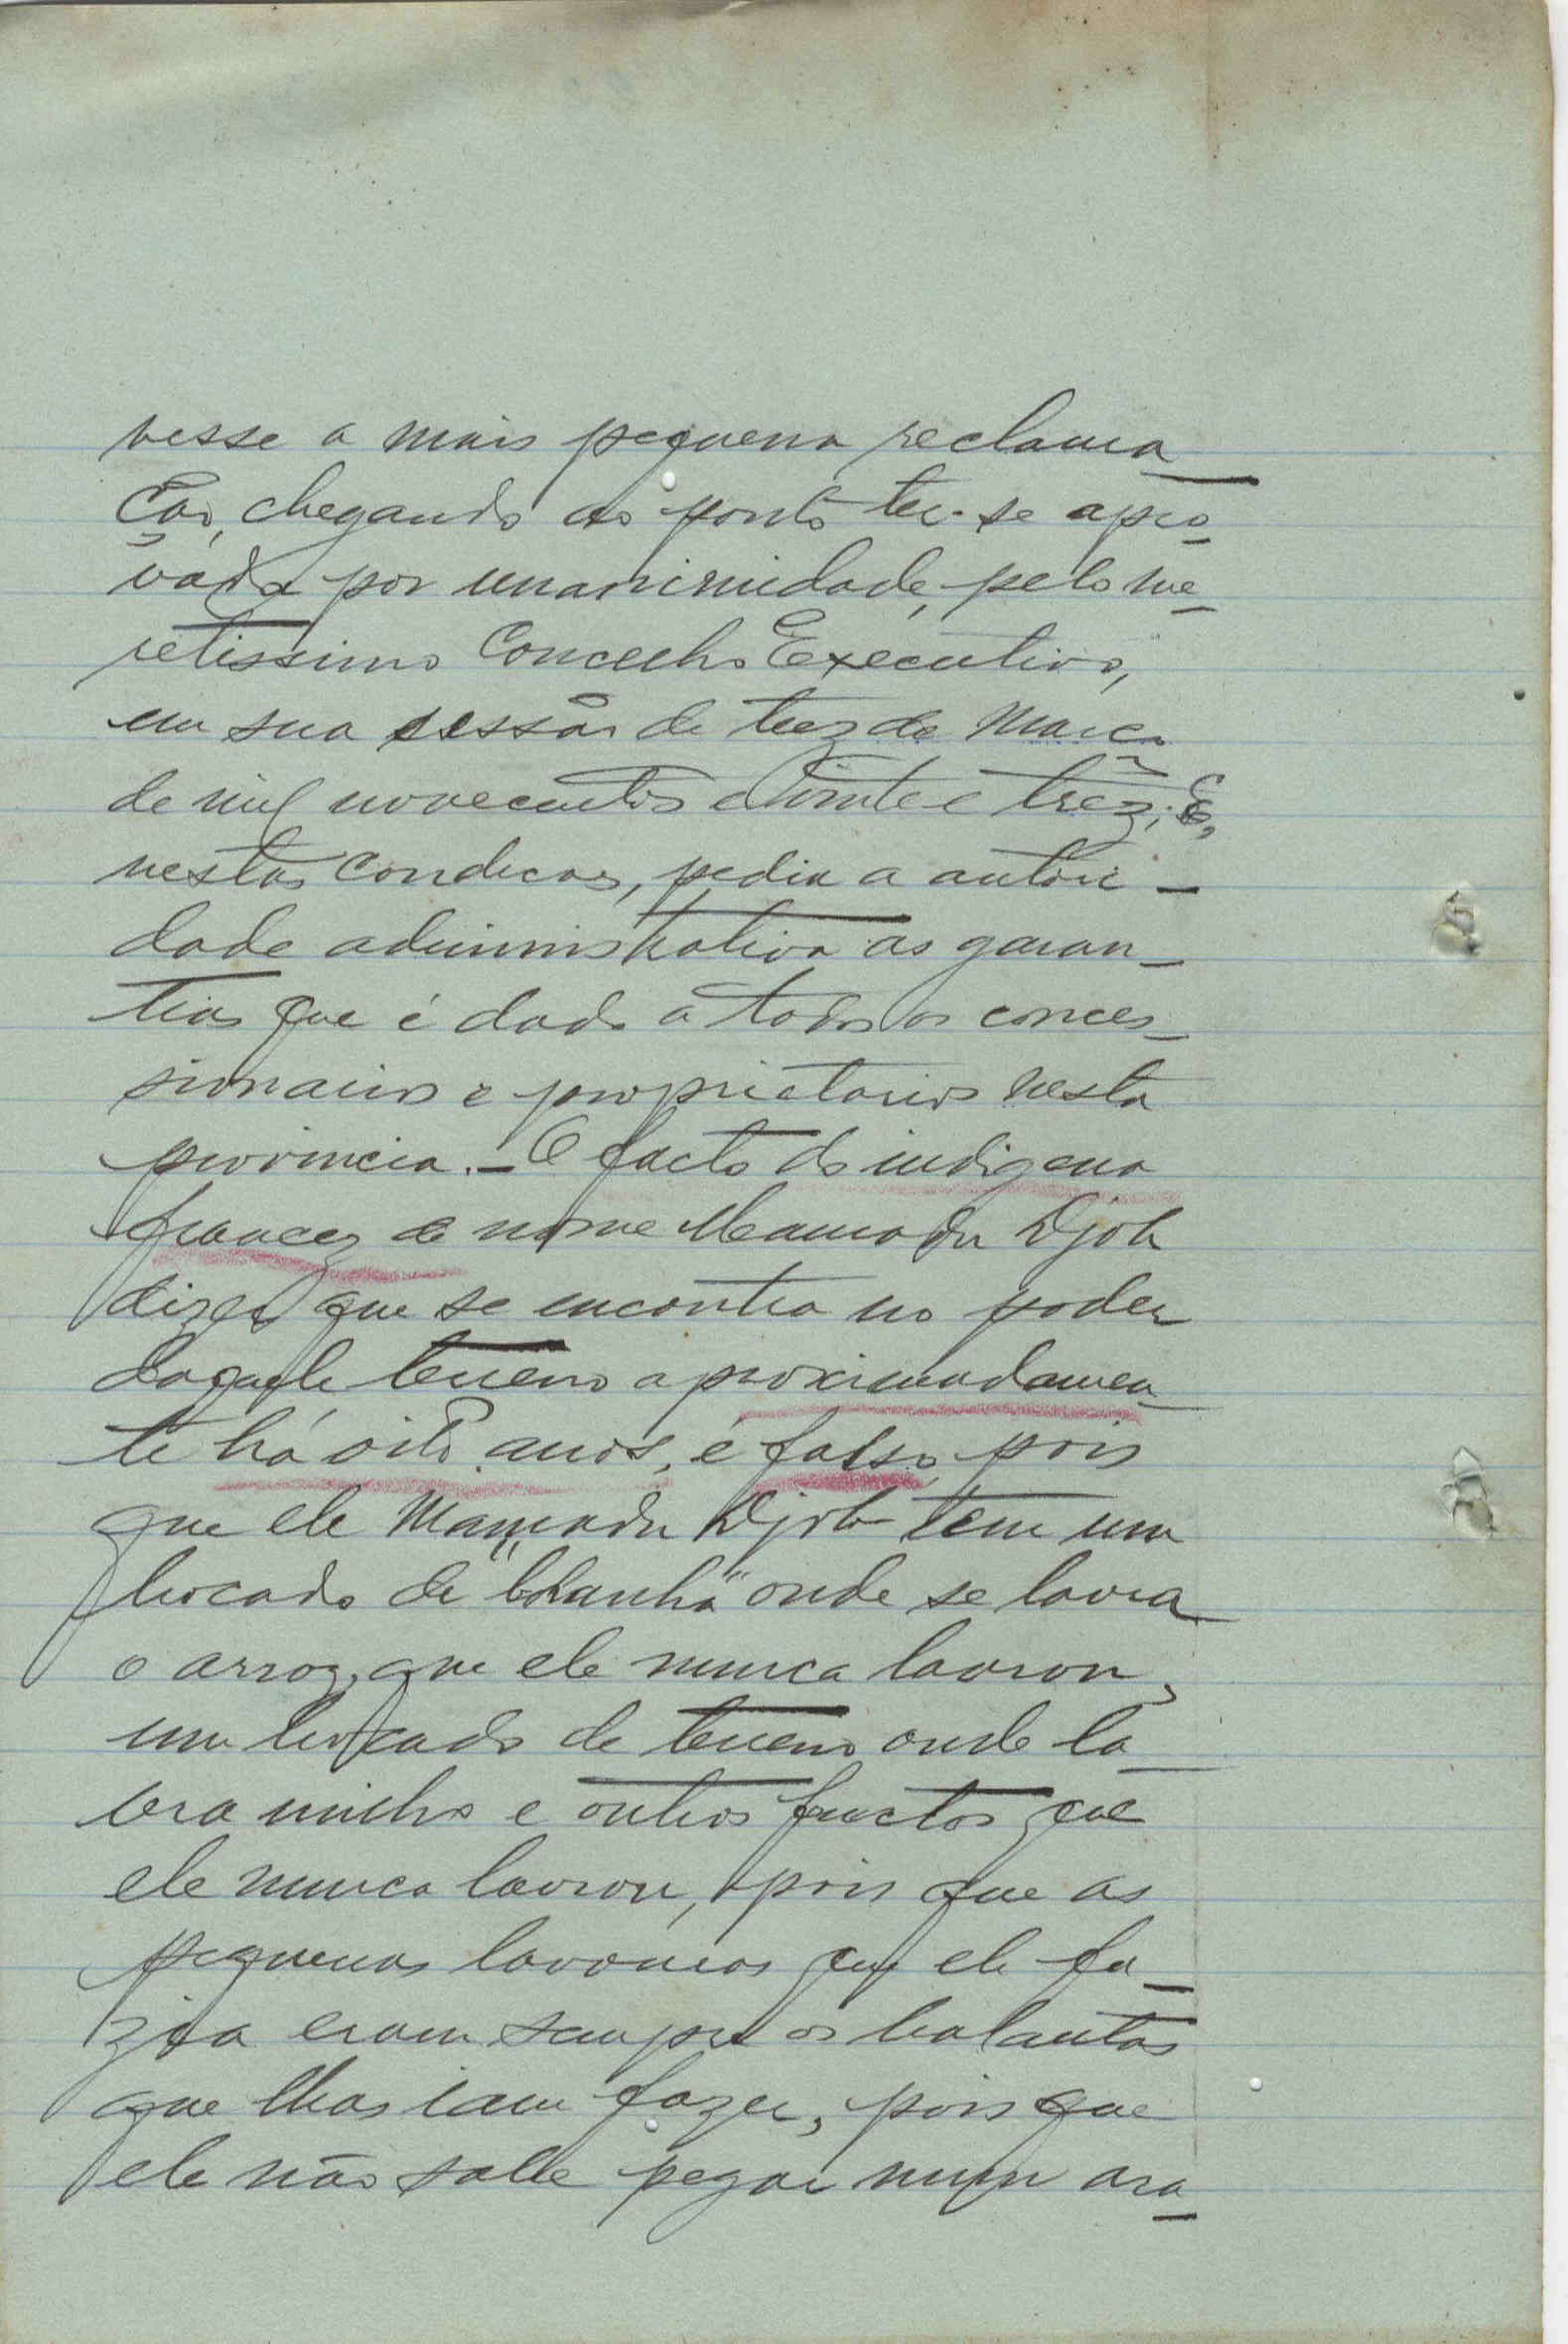 vesse a mais pequena reclama-
ção, chegando ao ponto ter-se apro-
vada por unanimidade, pelo me-
retissimo Concecho Executivo,
em sua sessão de trez de Março
de mil novecentos e vinte e trez; E,
nestas condições, pedia a autori-
dade administrativa as garan-
tias que é dado a todos os conces-
sionarios e proprietarios nesta
provincia. - O facto do indigena
francez de nome Mamadu Djob
dizer que se encontra no poder
daquele terreno aproximadamen-
te há oito anos, é falso, pois
que ele Mamadu Djob tem um
bocado de "bolanha" onde se lavra
o arroz, que ele nunca lavrou,
um bocado de terreno onde la-
vra milho e outros fructos que
ele nunca lavrou, pois que as
pequenas lavouras que ele fa-
zia eram sempre os balantas
que lhas iam fazer, pois que
ele não sabe pegar num ara-